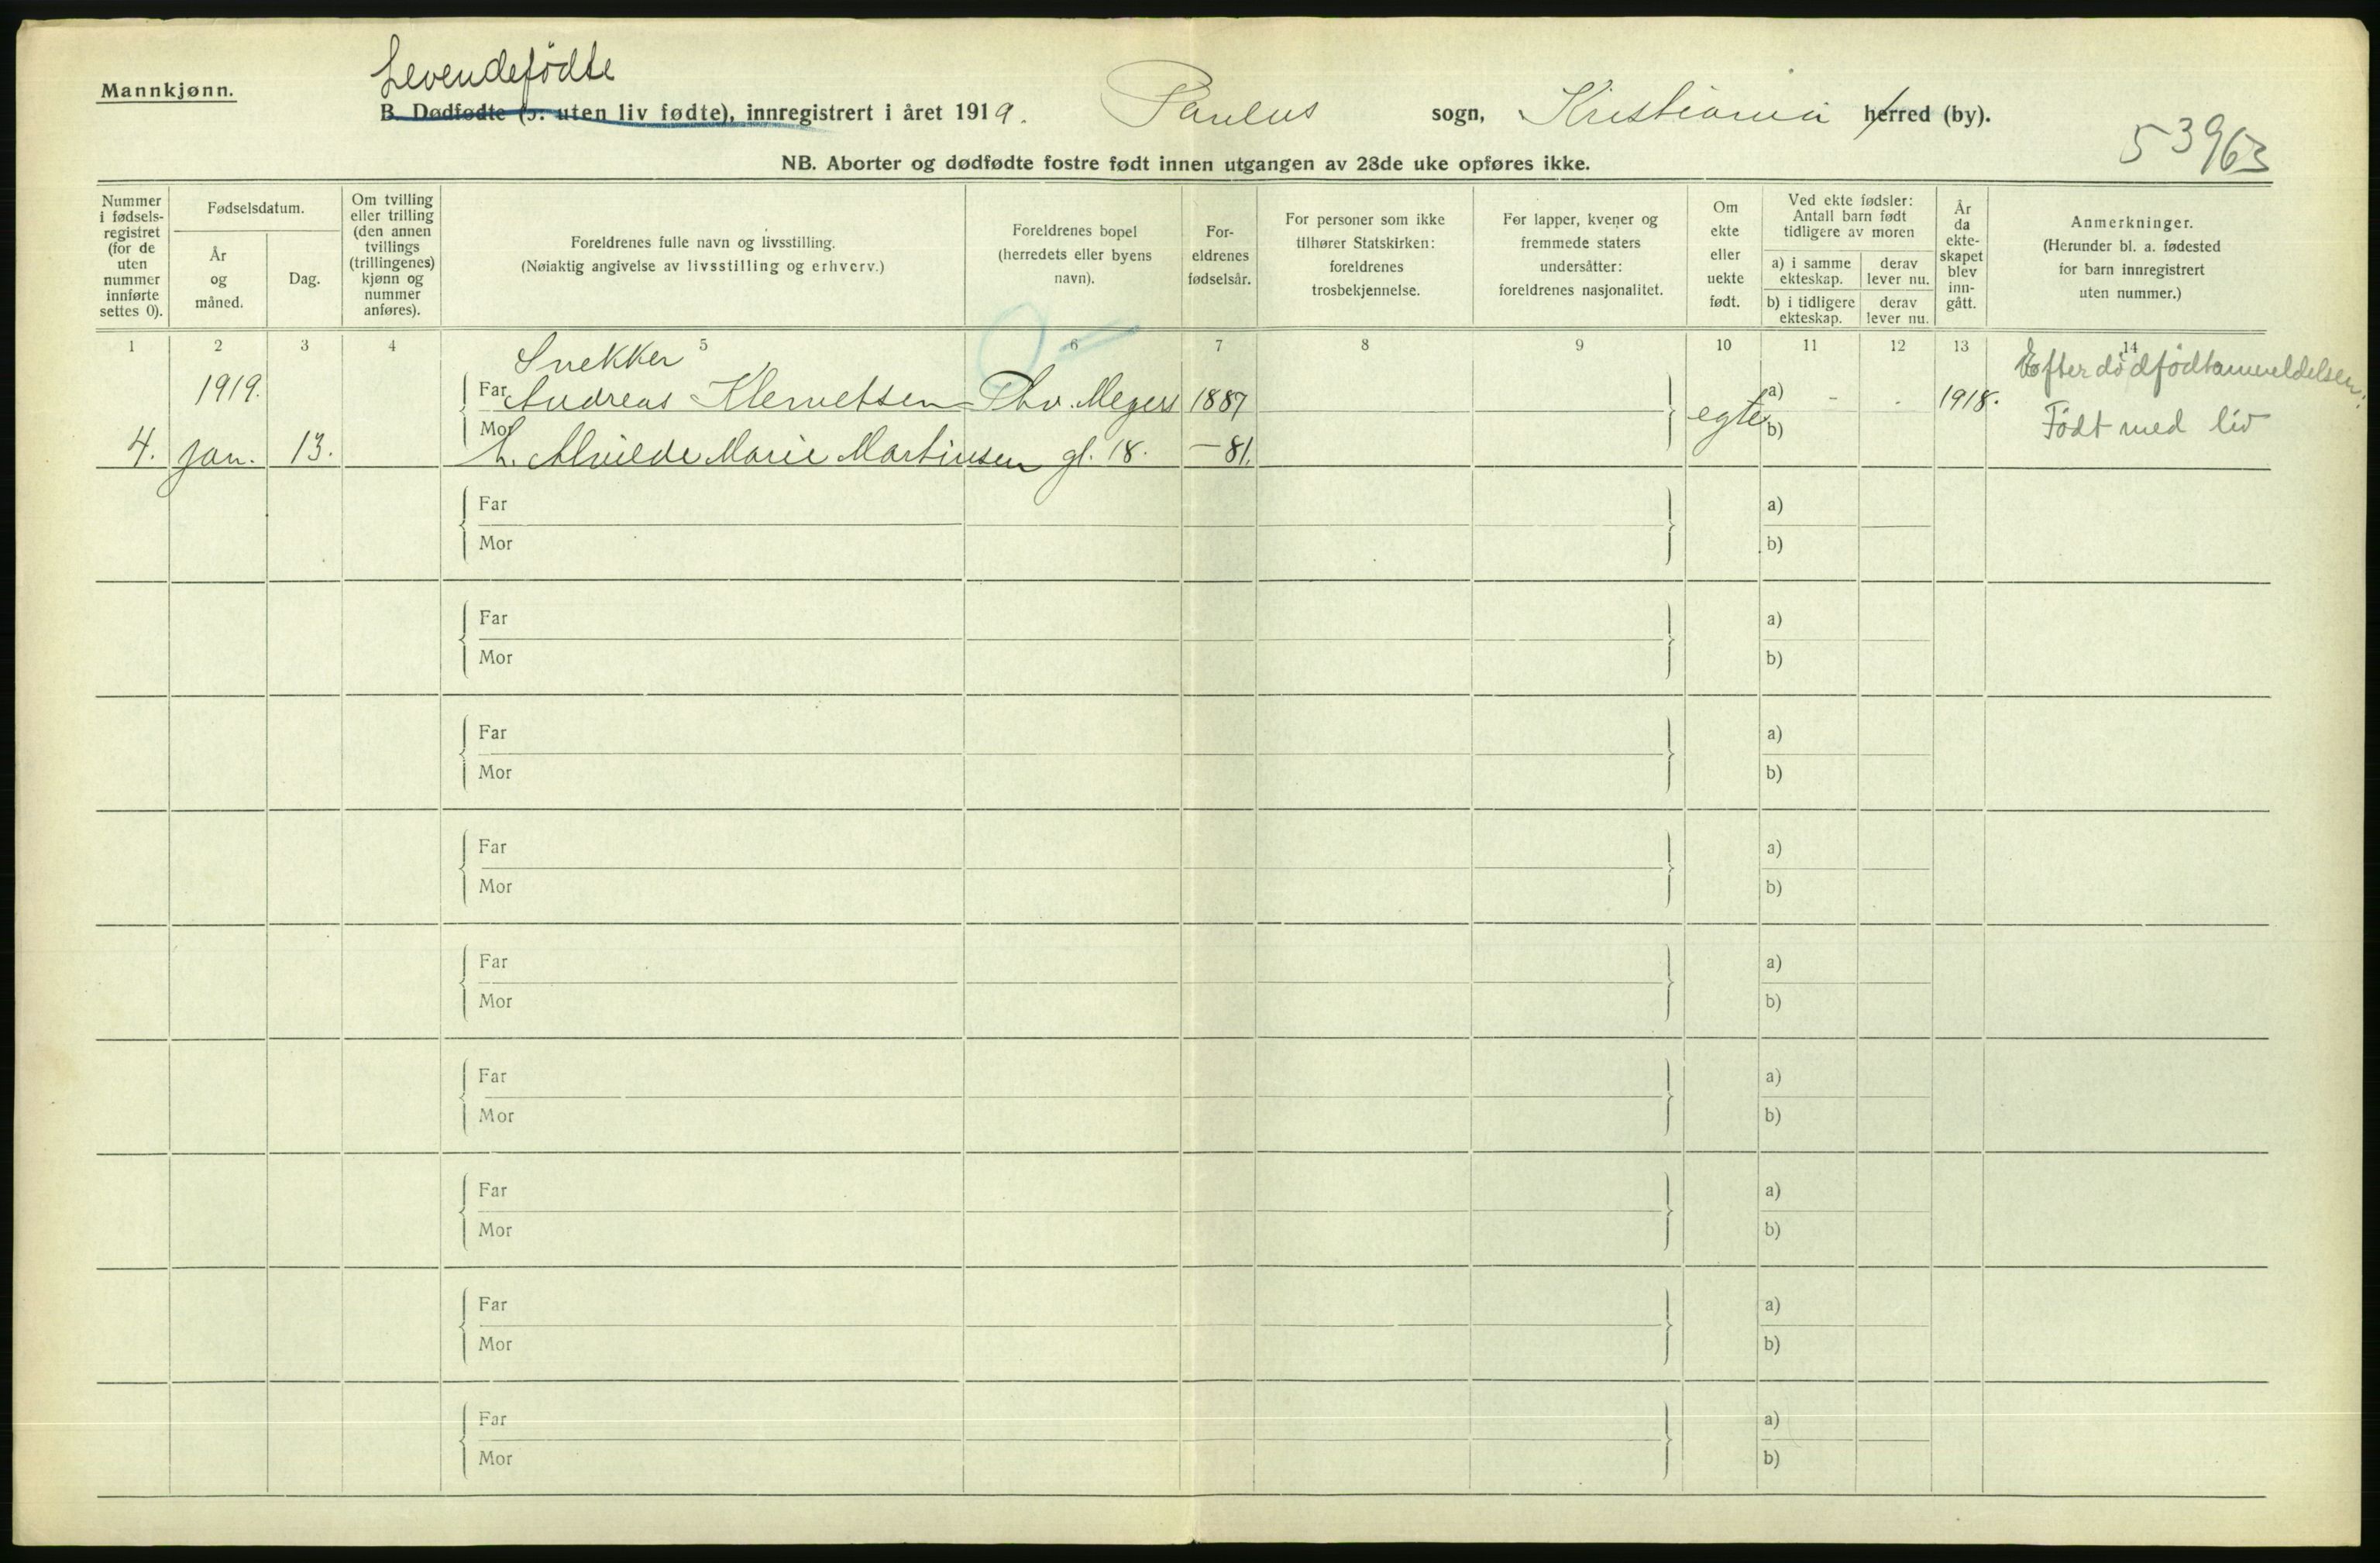 Mannkjønn.
Levendefødte
B. Dødfødte (ɔ: uten liv fødte), innregistrert i året 1919. Paulus sogn, Kristiania herred (by).
53963
NB. Aborter og dødfødte fostre født innen utgangen av 28de uke opføres ikke.
Nummer i fødsels- registret (for de uten nummer innførte settes 0).
Fødselsdatum.
År og måned.
Dag.
Om tvilling eller trilling (den annen tvillings (trillingenes) kjønn og nummer anføres).
Foreldrenes fulle navn og livsstilling.
(Nøiaktig angivelse av livsstilling og erhverv.)
Foreldrenes bopel (herredets eller byens navn).
For- eldrenes fødselsår.
For personer som ikke tilhører Statskirken: foreldrenes trosbekjennelse.
For lapper, kvener og fremmede staters undersåtter: foreldrenes nasjonalitet.
Om ekte eller uekte født.
Ved ekte fødsler: Antall barn født tidligere av moren
a) i samme ekteskap.
derav lever nu.
b) i tidligere ekteskap.
derav lever nu.
År da ekte- skapet blev inn- gått.
Anmerkninger.
(Herunder bl. a. fødested for barn innregistrert uten nummer.)
1 2 3 4 5 6 7 8 9 10 11 12 13 14
Snekker
1919. Far Andreas Klemetsen Thv. Meyers 1887 egte a) - - 1918. Efter dødfødtanmeldelsen:
4. jan. 13. Mor h. Alvilde Marie Martinsen gt. 18. -81. b) Født med liv
Far a)
Mor b)
Far a)
Mor b)
Far a)
Mor b)
Far a)
Mor b)
Far a)
Mor b)
Far a)
Mor b)
Far a)
Mor b)
Far a)
Mor b)
Far a)
Mor b)